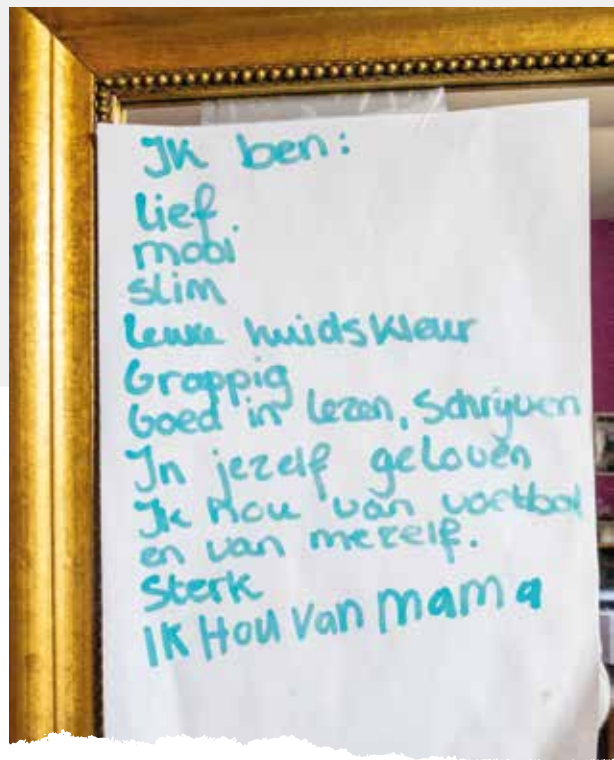 Ik ben:
lief
mooi
slim
leuke huidskleur
Grappig
Goed in lezen, Schrijven
In jezelf geloven
Ik Hou van voetbal
en van mezelf.
Sterk
IK HOU van mama